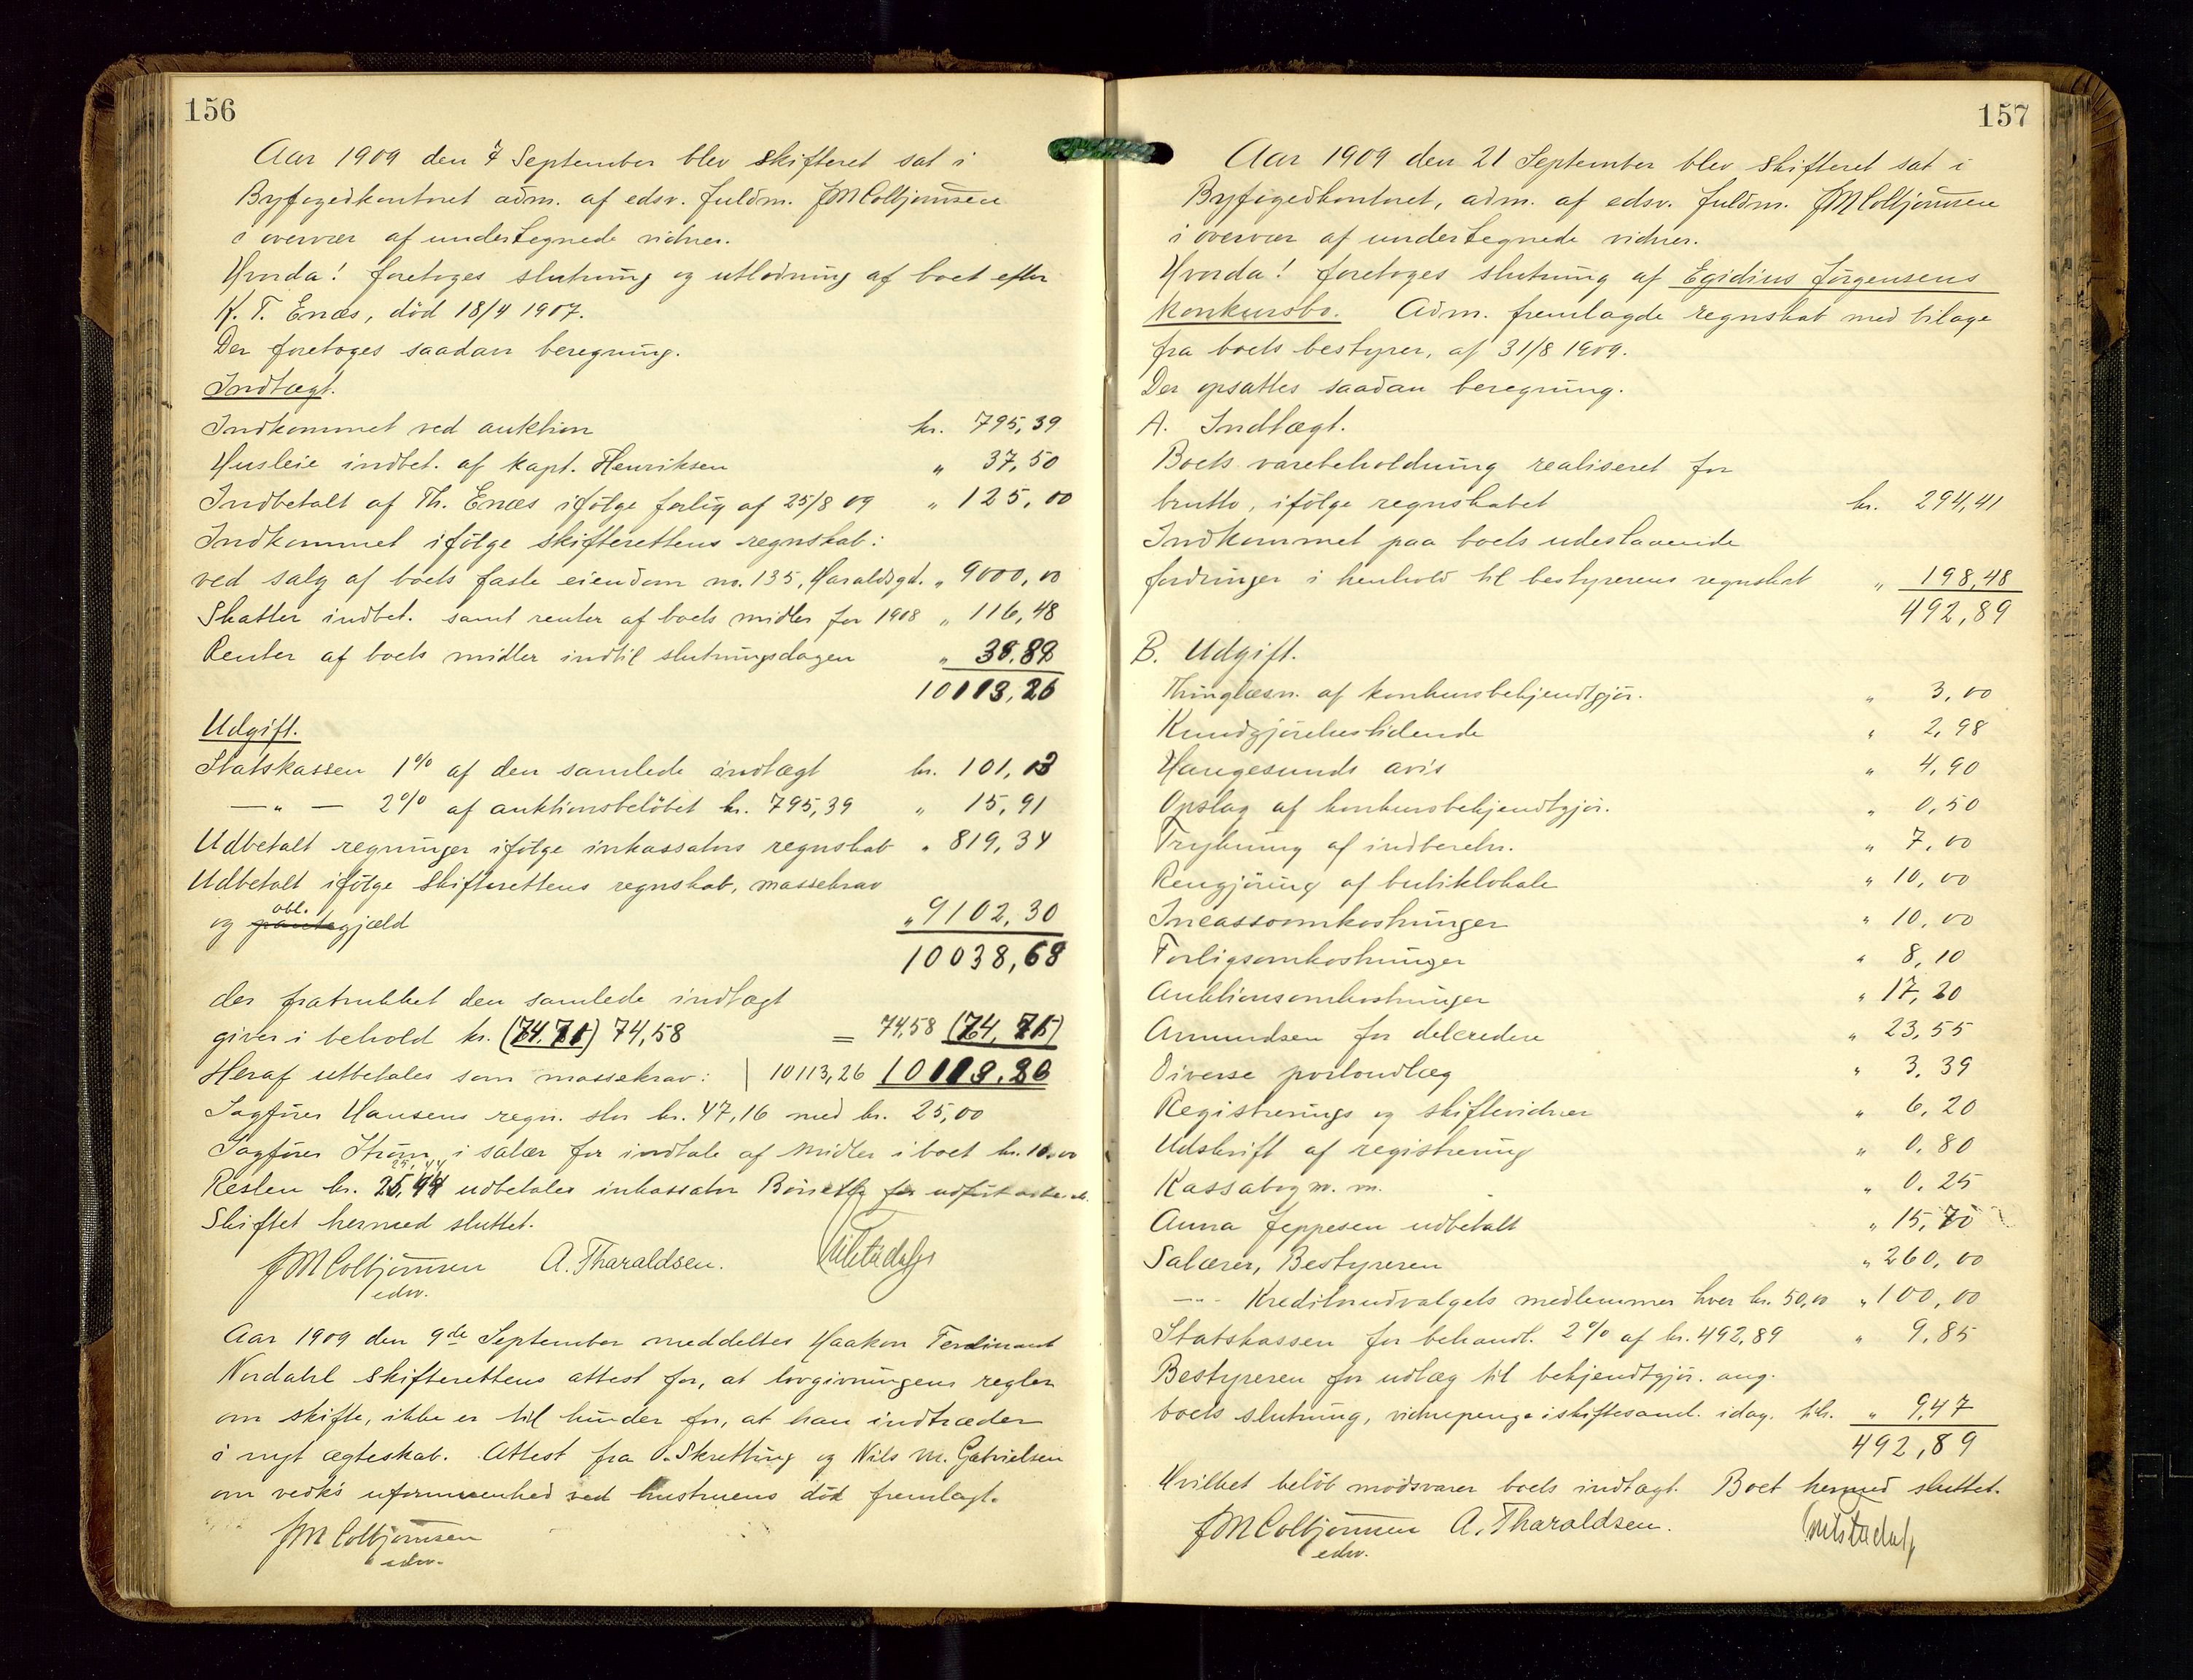 156
Aar 1909 den 7 September blev skifteret sat i
Byfogedkontoret adm. af edsv. fuldm. JMColbjørnsen
i overvær af undertegnede vidner.
Hvorda! foretoges slutning og utlodning af boet efter
K. T. Enæs, död 18/4 1907.
Der foretoges saadan beregning.
Indtægt.
Indkommet ved auktion kr. 795,39
Husleie indbet. af kapt. Henriksen " 37,50
Indbetalt af Th. Enæs ifölge forlig af 25/8 09 " 125,00
Indkommet ifölge skifterettens regnskab:
ved salg af boets faste eiendom no. 135, Haraldsgd. " 9000,00
Skatter indbet. samt renter af boets midler for 1908 " 116,48
Renter af boets midler indtil slutningsdagen " 38,89
10113,26
Udgift.
Statskassen 1% af den samlede indtægt kr. 101,13
— " — 2% af auktionsbelöbet kr. 795,39 " 15,91
Udbetalt regninger ifölge inkassators regnskab " 819,34
Udbetalt ifölge skifterettens regnskab, massekrav
obl.
og pantegjæld " 9102,30
10038,68
der fratrukket den samlede indtægt
giver i behold kr. (74,71) 74,58 = 74,58 (74,71)
Heraf utbetales som massekrav: | 10113,26 10113,26
Sagförer Hansens regn. stor kr. 47,16 med kr. 25,00
Sagförer Ström i salær for indtale af midler i boet kr. 10,00
25,44
Resten kr. 25,44 udbetales inkassator for udfört
Skiftet hermed sluttet.
JMColbjørnsen A. Tharaldsen.
edsv.
Aar 1909 den 9de September meddeltes Haakon Ferdinant
Nordahl skifterettens attest for, at lovgivningens regler
om skifte, ikke er til hinder for, at han indtræder
i nyt ægteskab. Attest fra O. Skretting og Nils M. Gabrielsen
om vedk's uformuenhed ved hustruens död fremlagt.
JMColbjørnsen
edsv.
157
Aar 1909 den 21 September blev skifteret sat i
Byfogedkontoret, adm. af edsv. fuldm. JMColbjørnsen
i overvær af undertegnede vidner.
Hvorda! foretoges slutning af Egidius Jørgensens
konkursbo. Adm. fremlagde regnskab med bilage
fra boets bestyrer, af 31/8 1909.
Der opsattes saadan beregning.
A. Indtægt.
Boets varebeholdning realiseret for
brutto, ifölge regnskabet kr. 294,41
Indkommet paa boets udestaaende
fordringer i henhold til bestyrerens regnskab " 198,48
492,89
B. Udgift.
Thinglæsn. af konkursbekjendtgjör. " 3,00
Kundgjörelsestidende " 2,98
Haugesunds avis " 4,90
Opslag af konkursbekjendtgjör. " 0,50
Trykning af indberetn. " 7,00
Rengjöring af butiklokale " 10,00
Incassoomkostninger " 10,00
Forligsomkostninger " 8,10
Auktionsomkostninger " 17,20
Amundsen for delcredere " 23,55
Diverse portoudlæg " 3,39
Registrerings og skiftevidner " 6,20
Udskrift af registrering " 0,80
Kassabog m. m. " 0,25
Anna Jeppesen udbetalt " 15,70
Salærer, Bestyreren " 260,00
— " - Kreditorudvalgets medlemmer hver kr. 50,00 " 100,00
Statskassen for behandl. 2% af kr. 492,89 " 9,85
Bestyreren for udlæg til bekjendtgjör. ang.
boets slutning, vidnepenge i skiftesaml. idag. tils. " 9,47
492,89
Hvilket belöb modsvarer boets indtægt. Boet hermed sluttet.
JMColbjørnsen A. Tharaldsen.
edsv.